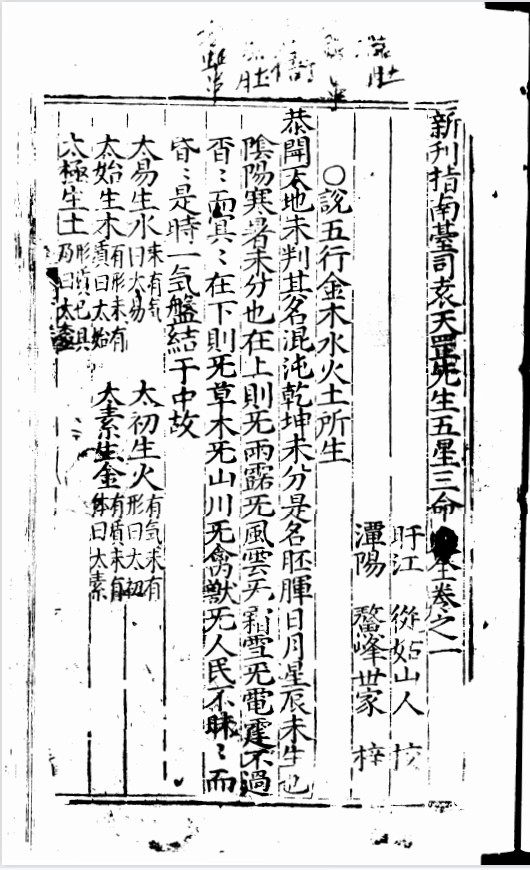 新刊指南臺司袁天罡先生五星三命 全卷之一
盱江 從姑山人 校
潭陽 鰲峰世家 梓
○說五行金木水火土所生
恭聞天地未判其名混沌乾坤未分是名胚腪日月星辰未生也
陰陽寒暑未分也在上則旡雨露旡風雲旡霜雪旡電霆不過
杳〻而冥〻在下則旡草木旡山川旡禽獸旡人民不昧〻而
昏〻是時一氣盤結于中故
太易生水 未有氣曰太易 太初生火 有氣未有形曰太初
太始生木 有形未有質曰太始 太素生金 有質未有体曰太素
太極生土 形質已具乃曰太極
胚
胚